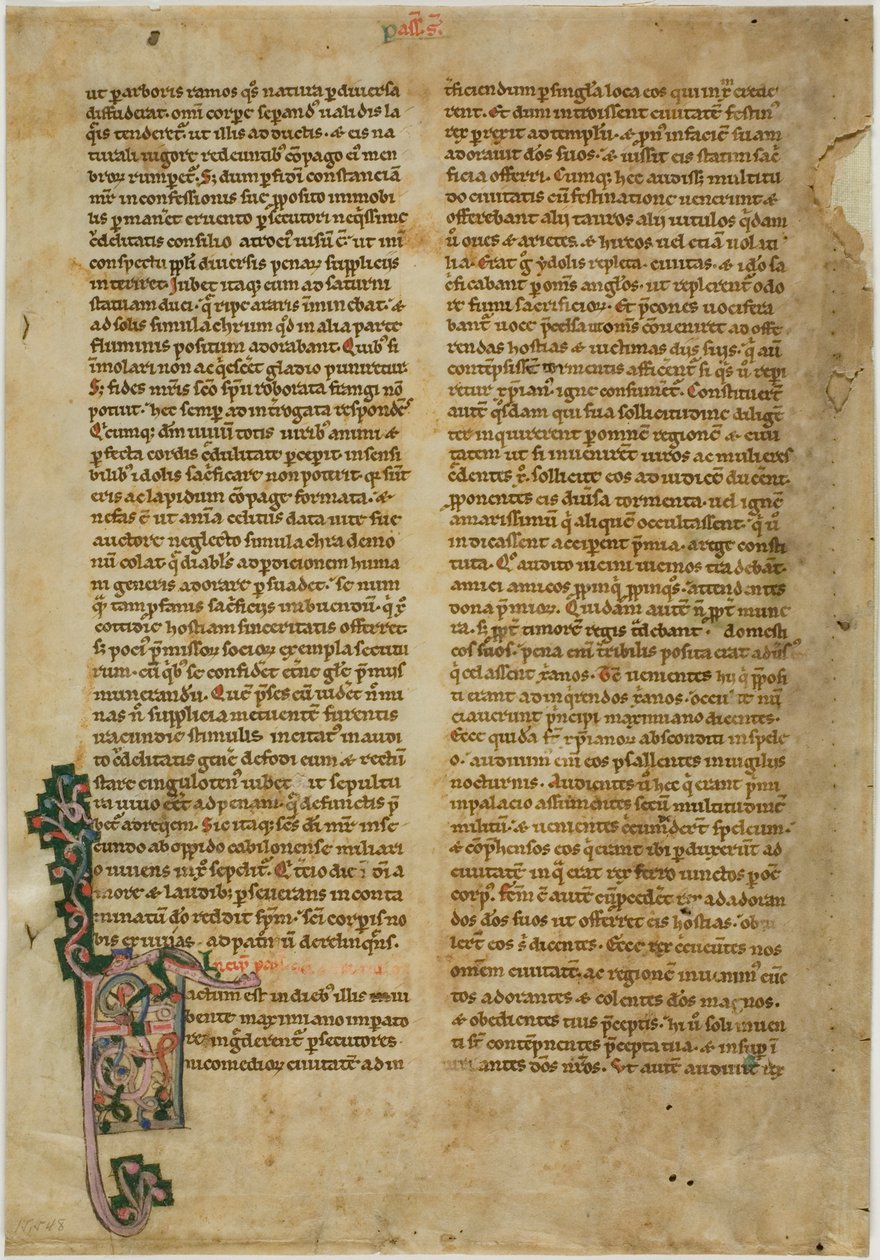 pass. s.
ut p arboris ramos q̄s natura p diuersa
diffuderat. omī corpe sepand᷒ ualidis la
q̄is tenderet᷒. ut illis adductis. ⁊ eis na
turali uigore redeuntib᷒ cōpago ei᷒ mem
broꝝ rumpet᷒. S; dum p fidī constanciā
mr̄ in confessionis sue ꝓposito immobi
lis pmanet cruento psecutori neq̄ssime
c̄delitatis consilio atroci᷒ uisū ē. ut inī
conspectu ppli diuersis penaꝝ supplicijs
interiret. Iubet itaq; eum ad saturni
statuam duci. q̄ ripe araris īminebat. ⁊
ad solis simulachrum q̄d in alia parte
fluminis positum adorabant. Quib᷒ si
īmolari non acq̄esc̄et gladio puniretur
S; fides mr̄is sc̄o sp̄u roborata frangi nō
potuit. hec semp ad int̄rogata respondēs
Q̄cumq; dm̄ uiuū totis uirib᷒ animi ⁊
pfecta cordis c̄dulitate pcepit. insensi
bilib᷒ idolis sac̄ficare non poterit. q̄ sūt
eris ac lapidum cōpage formata. ⁊
nefas ē ut anīa celitus data uite sue
auctore neglecto simulachra demo
nū colat q̄ diabl̄s ad pdicionem huma
ni generis adorare psuadet. Se num
q̄ tam pfanis sac̄ficijs inbuendū. q̄ xp̄
cottidie hostiam sinceritatis offerret.
s; poci᷒ p̄missoꝝ socioꝝ exempla secutu
rum. cū q̄b᷒ se confidet et̄ne gl̄e p̄mijs
munerandū. Quē p̄ses cū uidet n̄ mi
nas n̄ supplicia metuentē furentis
iracundie stimulis incitat᷒ inaudi
to c̄delitatis gen̄e defodi eum ⁊ rectū
stare cinguloten᷒ iubet ut sepultu
ra uiuo ēēt ad penam. q̄ defunctis p̄
bet᷒ ad reqiem. Sic itaq; sc̄s dī mr̄ in se
cundo ab oppido cabilonense miliari
o uiuens in xp̄ sepelit᷒. Qͥ t̄cio die ī dī a
more ⁊ laudib; pseuerans in conta
minatū dō reddit sp̄m. Sc̄i corpis no
bis exuuias ad patn̄ ū derelinq̄ns.
Incip̄
Factum est in dieb᷒ illis iu
bente maximiano imperato
re inḡderent᷒ psecutores
nicomedioꝝ ciuitatē ad in
t̄ficiendum p singl̄a loca eos qui in xm̄ crede
rent. Et dum introissent ciuitatē festin᷒
rex prexit ad templū. ⁊ pn᷒ in faciē suam
adorauit dōs suos. ⁊ iussit eis statim sac̄
ficia offerri. Cumq; hec audiss; multitu
do ciuitatis cū festinatione uenerunt ⁊
offerebant alij tauros alij uitulos q̄dam
ū oues ⁊ arietes. ⁊ hircos uel etiā uolati
lia. Erat ḡ ydolis repleta ciuitas. ⁊ ido sa
c̄ficabant p omīs angl̄os. ut replerent᷒ odo
re fumi sacrificioꝝ. Et p̄cones uocifera
bant᷒ uoce p̄celsa ut omīs cōueniret ad offe
rendas hostias ⁊ uictimas dijs suis. q̄ aū
contēpsissent tormentis afficent᷒ si q̄s ū repi
retur xp̄ian᷒. igne consumet᷒. Constituert̄
autē q̄sdam qui sua sollicitudine diligēt
ter inquirerent p omnē regionē ⁊ ciui
tatem ut si inuenirēt uiros ac mulieres
c̄dentes xp̄. sollicite eos ad iudicē ducēent.
ꝓponentes eis diūsa tormenta. uel ignē
amarissimū q̄ aliquē occultassent. q̄ ū
indicassent accipent p̄mia. a rege consti
tuta. Qͦ audito uicini uicinos tradebāt.
amici amicos ꝓpinq̄ ꝓpinq̄s. attendentes
dona p̄mioꝝ. Quidam autē n̄ ꝓpt᷒ mune
ra. s; ꝓpt᷒ timorē regis t̄debant domesti
cos suos. pena enī t̄ribilis posita erat ad
q̄ celassent xp̄anos. Tūc uenientes hij q̄ ꝓposi
ti erant ad inq̄rendos xp̄anos. occu te nū
ciauerunt p̄ncipi maximiano dicentes.
Ecce quidā st̄ xp̄ianoꝝ absconditi in spele
o. audiuim᷒ enī eos psallentes in uigilijs
nocturnis. Audientes ū hec q̄ erant p̄mi
in palacio assumentes secū multitudinē
militū. ⁊ uenientes c̄cumdēdert̄ speleum.
⁊ cōp̄hensos eos q̄ erant ibi pduxerūt ad
ciuitatē in q̄ erat rex ferro uinctos p oēs
corp᷒. fēm ē autē cū p̄cedēt rex ad adoran
dos dōs suos ut offerret eis hostias. ob
lert̄ eos s̄ dicentes. Ecce rex euūtes nos
omēm ciuitatē. ac regionē inuenim᷒ cūc
tos adorantes ⁊ colentes dōs magnos.
⁊ obedientes tuis p̄ceptis. hi ū soli inuen
ti st̄ contēpnentes p̄cepta tua. ⁊ insup ī
antes dōs nr̄os. Vt autē audiuit rex
15.548